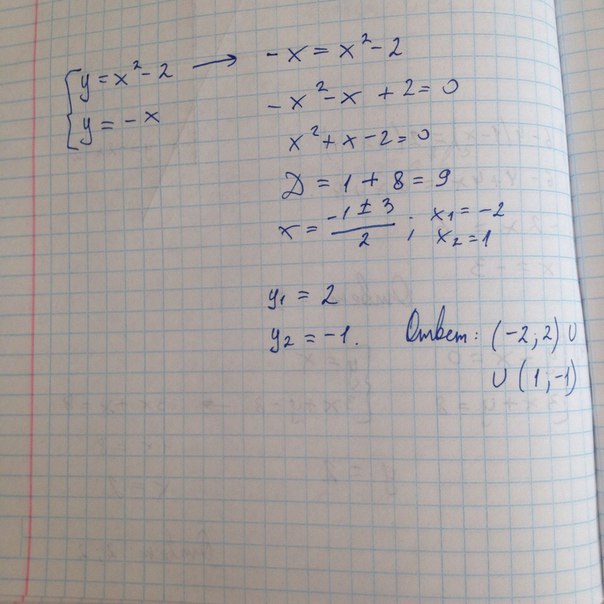 { y = x² - 2 → -x = x² - 2
y = -x
-x² - x + 2 = 0
x² + x - 2 = 0
D = 1 + 8 = 9
x = (-1 ± 3)/2 ; x₁ = -2
x₂ = 1
y₁ = 2
y₂ = -1. Ответ: (-2; 2) ∪
∪ (1; -1)